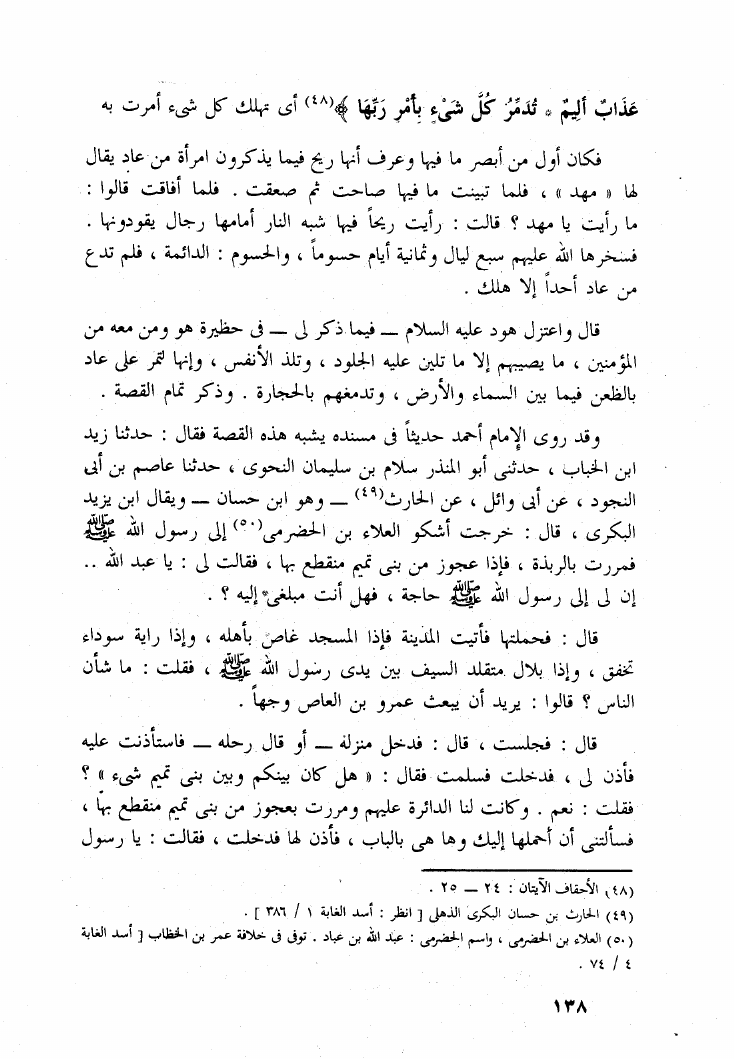 عَذَابٌ أَلِيمٌ * تُدَمِّرُ كُلَّ شَيْءٍ بِأَمْرِ رَبِّهَا ﴾(٤٨) أى تهلك كل شىء أمرت به
فكان أول من أبصر ما فيها وعرف أنها ريح فيما يذكرون امرأة من عاد يقال
لها « مهد » ، فلما تبينت ما فيها صاحت ثم صعقت . فلما أفاقت قالوا :
ما رأيت يا مهد ؟ قالت : رأيت ريحاً فيها شبه النار أمامها رجال يقودونها .
فسخرها الله عليهم سبع ليال وثمانية أيام حسوماً ، والحسوم : الدائمة ، فلم تدع
من عاد أحداً إلا هلك .
قال واعتزل هود عليه السلام ــ فيما ذكر لى ــ فى حظيرة هو ومن معه من
المؤمنين ، ما يصيبهم إلا ما تلين عليه الجلود ، وتلذ الأنفس ، وإنها لتمر على عاد
بالظعن فيما بين السماء والأرض ، وتدمغهم بالحجارة . وذكر تمام القصة .
وقد روى الإمام أحمد حديثاً فى مسنده يشبه هذه القصة فقال : حدثنا زيد
ابن الحباب ، حدثنى أبو المنذر سلام بن سليمان النحوى ، حدثنا عاصم بن أبى
النجود ، عن أبى وائل ، عن الحارث(٤٩) ــ وهو ابن حسان ــ ويقال ابن يزيد
البكرى ، قال : خرجت أشكو العلاء بن الحضرمى(٥٠) إلى رسول الله ﷺ
فمررت بالربذة ، فإذا عجوز من بنى تميم منقطع بها ، فقالت لى : يا عبد الله ..
إن لى إلى رسول الله ﷺ حاجة ، فهل أنت مبلغى إليه ؟ .
قال : فحملتها فأتيت المدينة فإذا المسجد غاص بأهله ، وإذا راية سوداء
تخفق ، وإذا بلال متقلد السيف بين يدى رسول الله ﷺ ، فقلت : ما شأن
الناس ؟ قالوا : يريد أن يبعث عمرو بن العاص وجهاً .
قال : فجلست ، قال : فدخل منزله ــ أو قال رحله ــ فاستأذنت عليه
فأذن لى ، فدخلت فسلمت فقال : « هل كان بينكم وبين بنى تميم شىء » ؟
فقلت : نعم . وكانت لنا الدائرة عليهم ومررت بعجوز من بنى تميم منقطع بها ،
فسألتنى أن أحملها إليك وها هى بالباب ، فأذن لها فدخلت ، فقالت : يا رسول
(٤٨) الأحقاف الآيتان : ٢٤ ــ ٢٥ .
(٤٩) الحارث بن حسان البكرى الذهلى [ انظر : أسد الغابة ١ / ٣٨٦ ] .
(٥٠) العلاء بن الحضرمى ، واسم الحضرمى : عبد الله بن عباد . توفى فى خلافة عمر بن الخطاب [ أسد الغابة
٤ / ٧٤ .
١٣٨